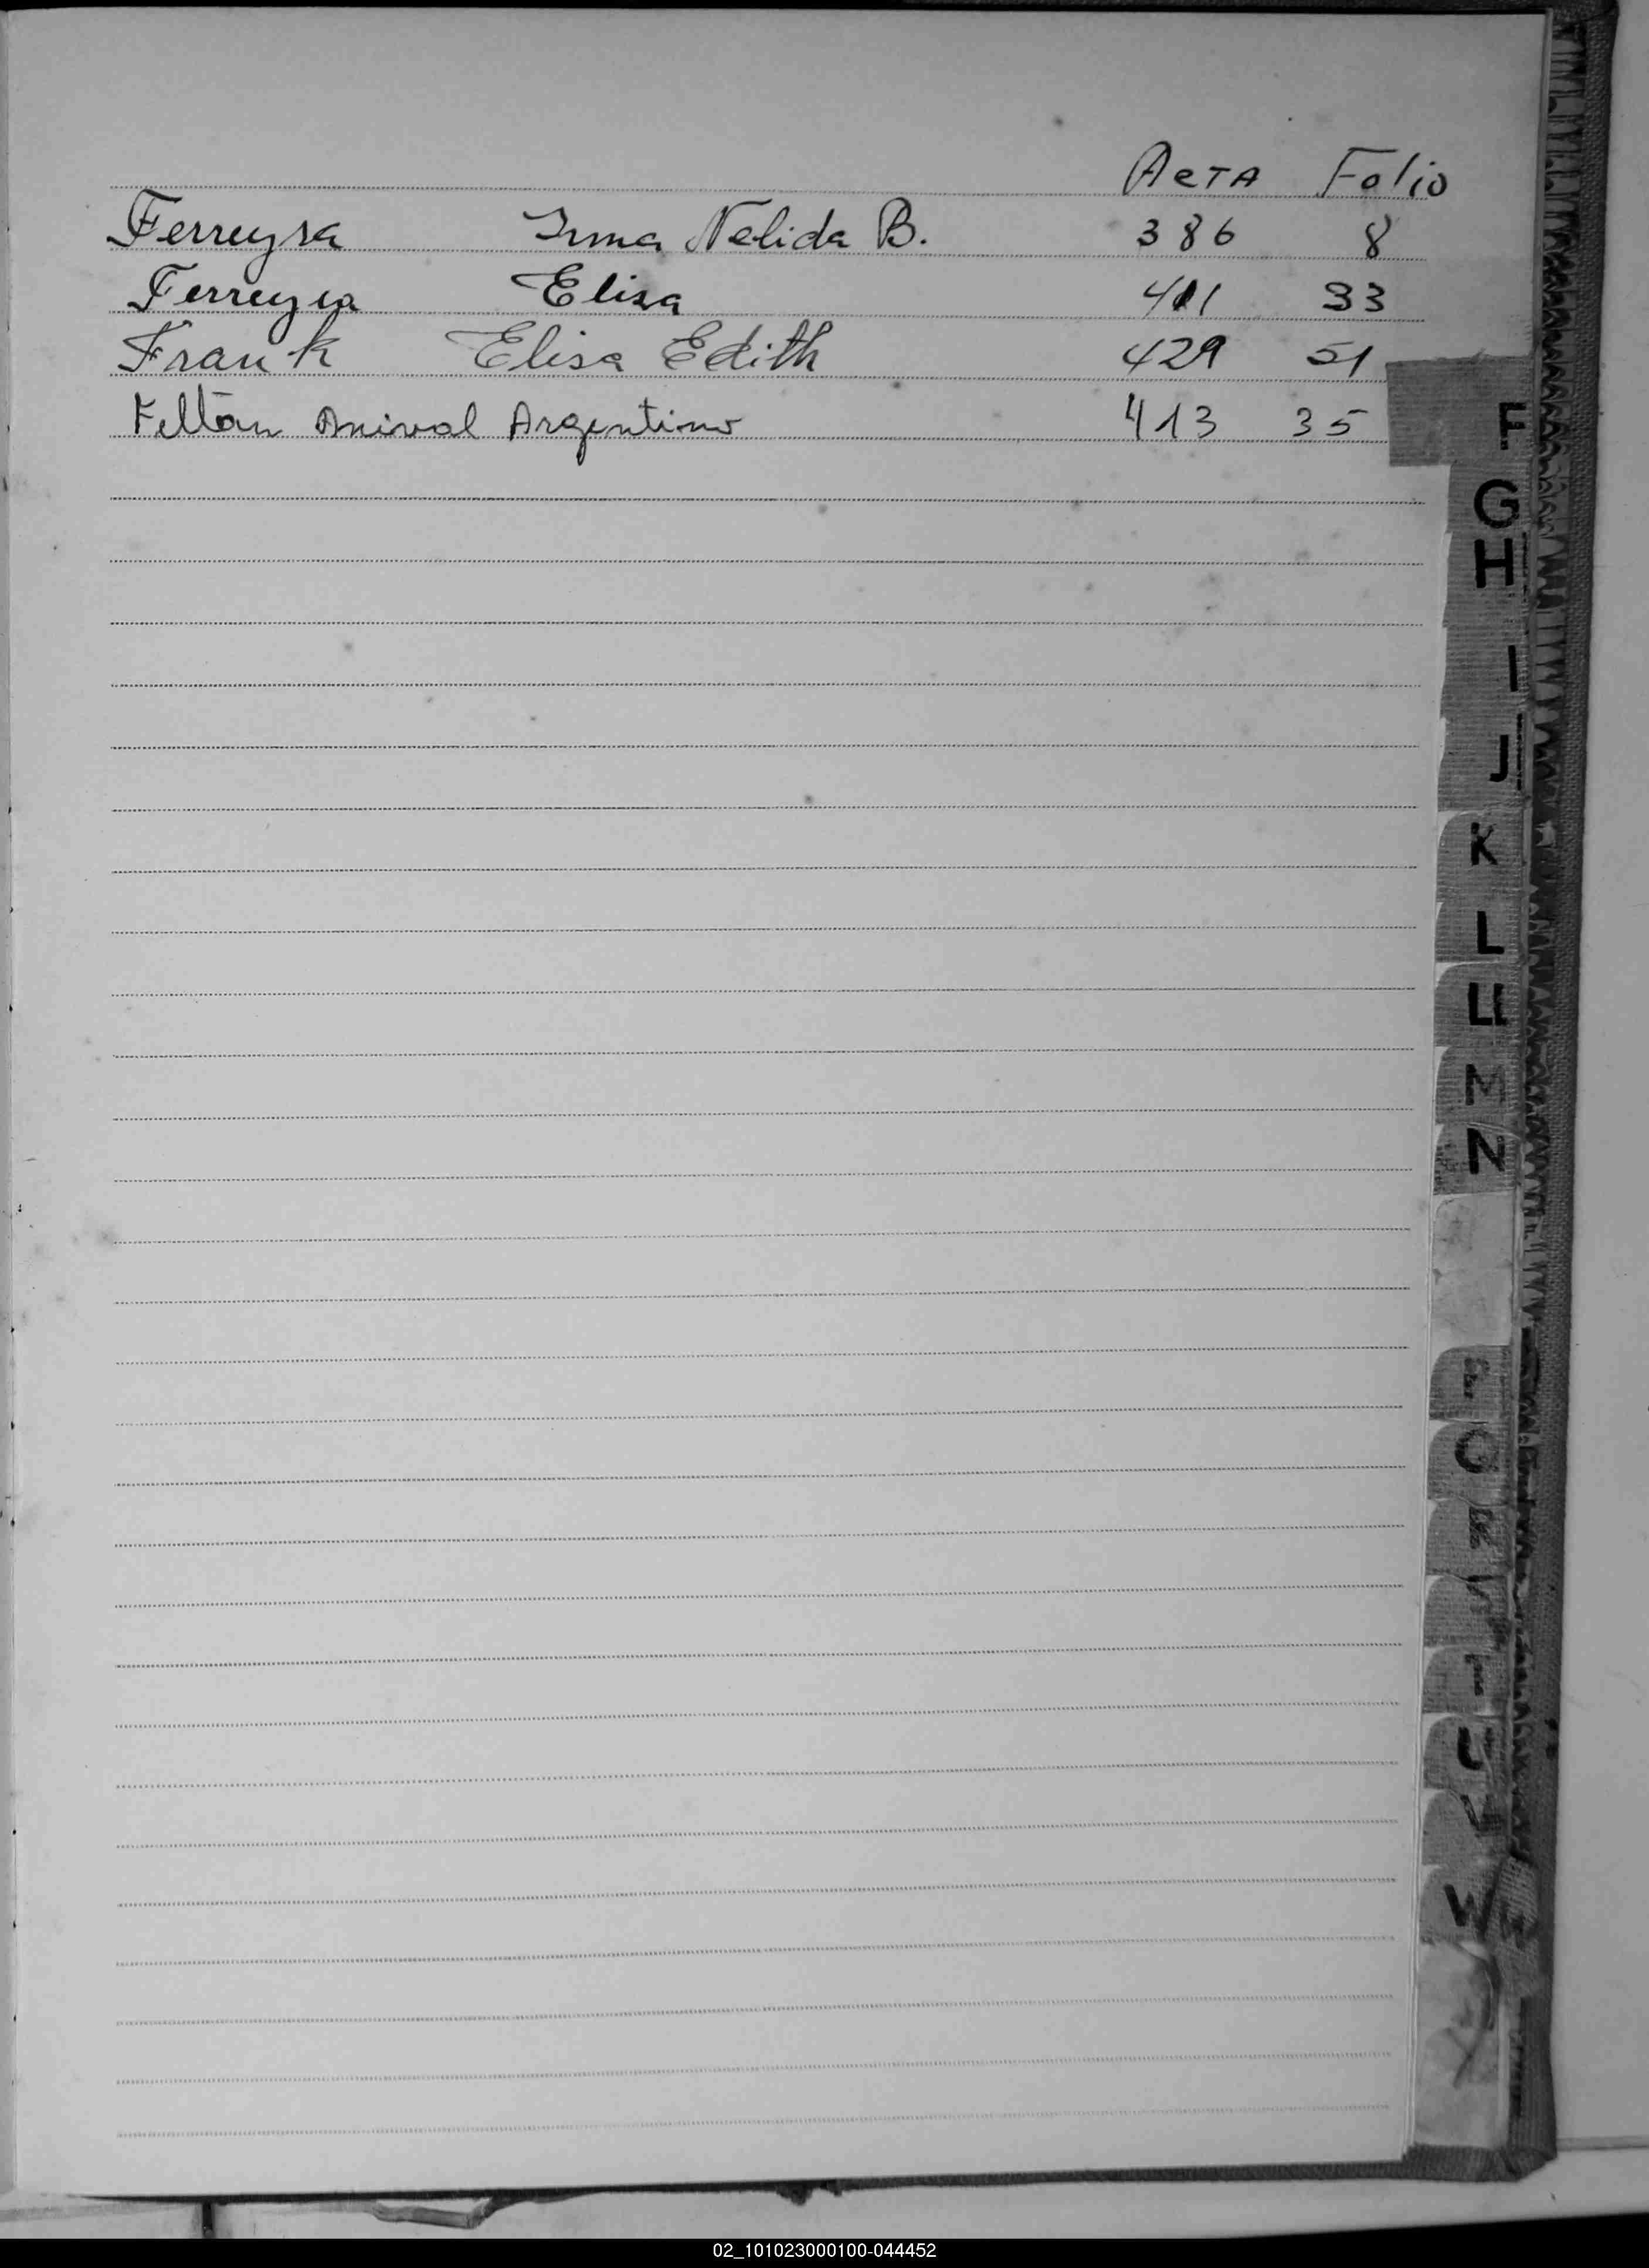 Acta Folio
Ferreyra Irma Nelida B. 386 8
Ferreyra Elisa 411 33
Frank Elisa Edith 429 51
Feltan Anival Argentino 413 35
F
G
H
I
J
K
L
LL
M
N
U
V
W
02_101023000100-044452